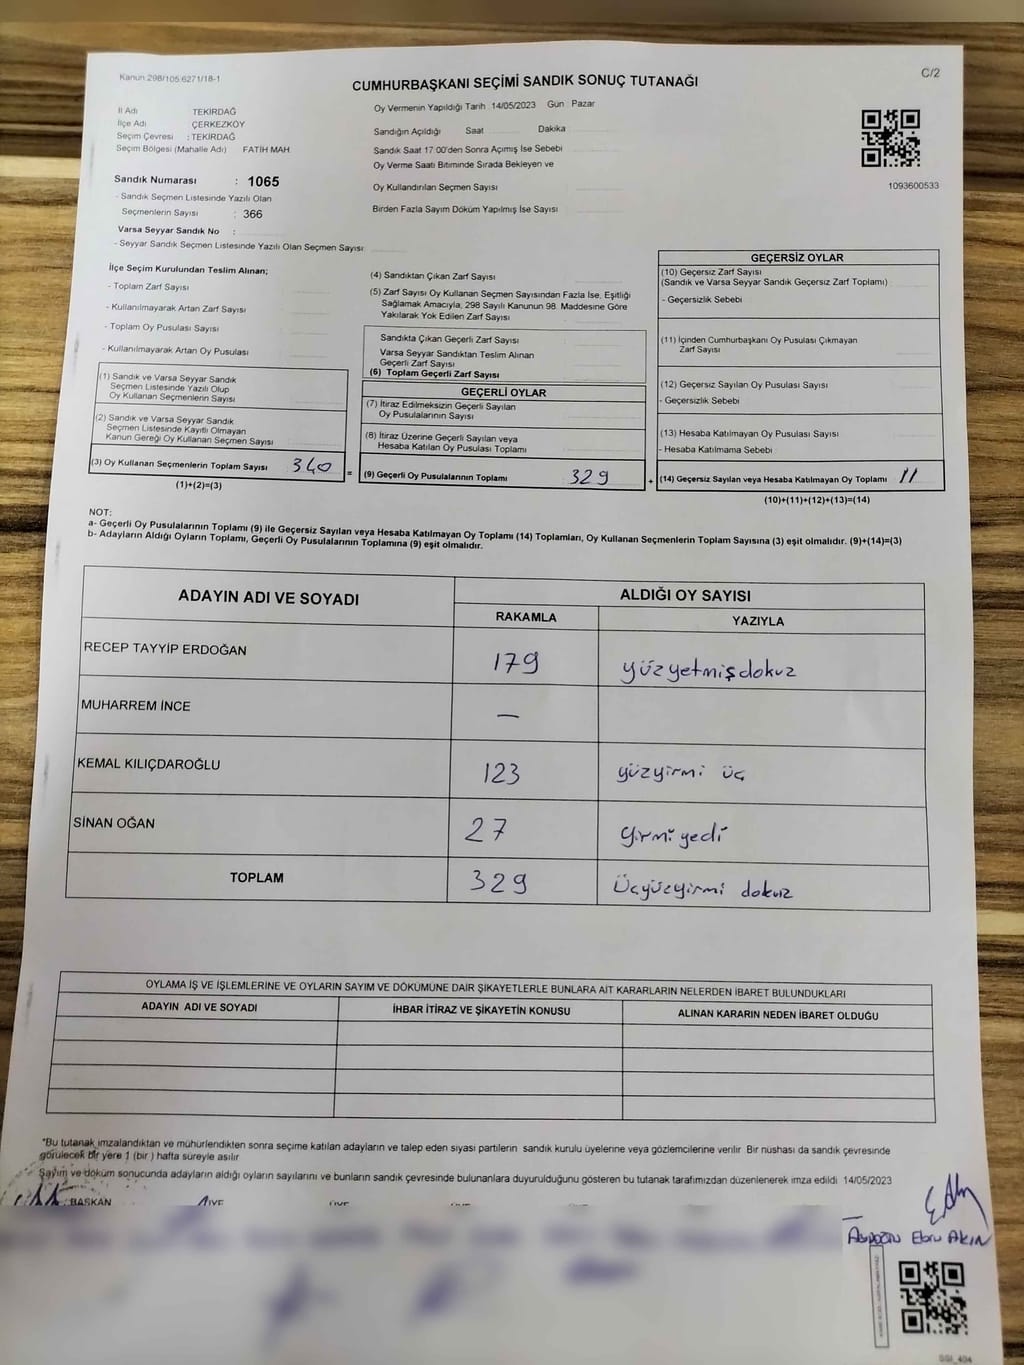 Kanun 298/105 6271/18-1
CUMHURBAŞKANI SEÇİMİ SANDIK SONUÇ TUTANAĞI
C/2
İl Adı TEKİRDAĞ
İlçe Adı ÇERKEZKÖY
Seçim Çevresi : TEKİRDAĞ
Seçim Bölgesi (Mahalle Adı) FATİH MAH.
Sandık Numarası : 1065
- Sandık Seçmen Listesinde Yazılı Olan
Seçmenlerin Sayısı : 366
Varsa Seyyar Sandık No :
- Seyyar Sandık Seçmen Listesinde Yazılı Olan Seçmen Sayısı
Oy Vermenin Yapıldığı Tarih 14/05/2023 Gün Pazar
Sandığın Açıldığı Saat Dakika
Sandık Saat 17 00'den Sonra Açımış İse Sebebi
Oy Verme Saati Bitiminde Sırada Bekleyen ve
Oy Kullandırılan Seçmen Sayısı
Birden Fazla Sayım Döküm Yapılmış İse Sayısı
1093600533
İlçe Seçim Kurulundan Teslim Alınan;
- Toplam Zarf Sayısı
- Kullanılmayarak Artan Zarf Sayısı
- Toplam Oy Pusulası Sayısı
- Kullanılmayarak Artan Oy Pusulası
(1) Sandık ve Varsa Seyyar Sandık
Seçmen Listesinde Yazılı Olup
Oy Kullanan Seçmenlerin Sayısı
(2) Sandık ve Varsa Seyyar Sandık
Seçmen Listesinde Kayıtlı Olmayan
Kanun Gereği Oy Kullanan Seçmen Sayısı
(3) Oy Kullanan Seçmenlerin Toplam Sayısı 340 =
(1)+(2)=(3)
(4) Sandıktan Çıkan Zarf Sayısı
(5) Zarf Sayısı Oy Kullanan Seçmen Sayısından Fazla İse, Eşitliği
Sağlamak Amacıyla, 298 Sayılı Kanunun 98. Maddesine Göre
Yakılarak Yok Edilen Zarf Sayısı
Sandıkta Çıkan Geçerli Zarf Sayısı
Varsa Seyyar Sandıktan Teslim Alınan
Geçerli Zarf Sayısı
(6) Toplam Geçerli Zarf Sayısı
GEÇERLİ OYLAR
(7) İtiraz Edilmeksizin Geçerli Sayılan
Oy Pusulalarının Sayısı
(8) İtiraz Üzerine Geçerli Sayılan veya
Hesaba Katılan Oy Pusulası Toplamı
(9) Geçerli Oy Pusulalarının Toplamı 329 +
GEÇERSİZ OYLAR
(10) Geçersiz Zarf Sayısı
(Sandık ve Varsa Seyyar Sandık Geçersiz Zarf Toplamı)
- Geçersizlik Sebebi
(11) İçinden Cumhurbaşkanı Oy Pusulası Çıkmayan
Zarf Sayısı
(12) Geçersiz Sayılan Oy Pusulası Sayısı
- Geçersizlik Sebebi
(13) Hesaba Katılmayan Oy Pusulası Sayısı
- Hesaba Katılmama Sebebi
(14) Geçersiz Sayılan veya Hesaba Katılmayan Oy Toplamı 11
(10)+(11)+(12)+(13)=(14)
NOT:
a- Geçerli Oy Pusulalarının Toplamı (9) ile Geçersiz Sayılan veya Hesaba Katılmayan Oy Toplamı (14) Toplamları, Oy Kullanan Seçmenlerin Toplam Sayısına (3) eşit olmalıdır. (9)+(14)=(3)
b- Adayların Aldığı Oyların Toplamı, Geçerli Oy Pusulalarının Toplamına (9) eşit olmalıdır.
ADAYIN ADI VE SOYADI
ALDIĞI OY SAYISI
RAKAMLA YAZIYLA
RECEP TAYYİP ERDOĞAN 179 yüzyetmişdokuz
MUHARREM İNCE —
KEMAL KILIÇDAROĞLU 123 yüzyirmi üç
SİNAN OĞAN 27 yirmi yedi
TOPLAM 329 Üçyüzyirmi dokuz
OYLAMA İŞ VE İŞLEMLERİNE VE OYLARIN SAYIM VE DÖKÜMÜNE DAİR ŞİKAYETLERLE BUNLARA AİT KARARLARIN NELERDEN İBARET BULUNDUKLARI
ADAYIN ADI VE SOYADI İHBAR İTİRAZ VE ŞİKAYETİN KONUSU ALINAN KARARIN NEDEN İBARET OLDUĞU
*Bu tutanak imzalandıktan ve mühürlendikten sonra seçime katılan adayların ve talep eden siyasi partilerin sandık kurulu üyelerine veya gözlemcilerine verilir Bir nüshası da sandık çevresinde
görülecek bir yere 1 (bir ) hafta süreyle asılır
Sayım ve döküm sonucunda adayların aldığı oyların sayılarını ve bunların sandık çevresinde bulunanlara duyurulduğunu gösteren bu tutanak tarafımızdan düzenlenerek imza edildi 14/05/2023
BAŞKAN
Ebru AKIN